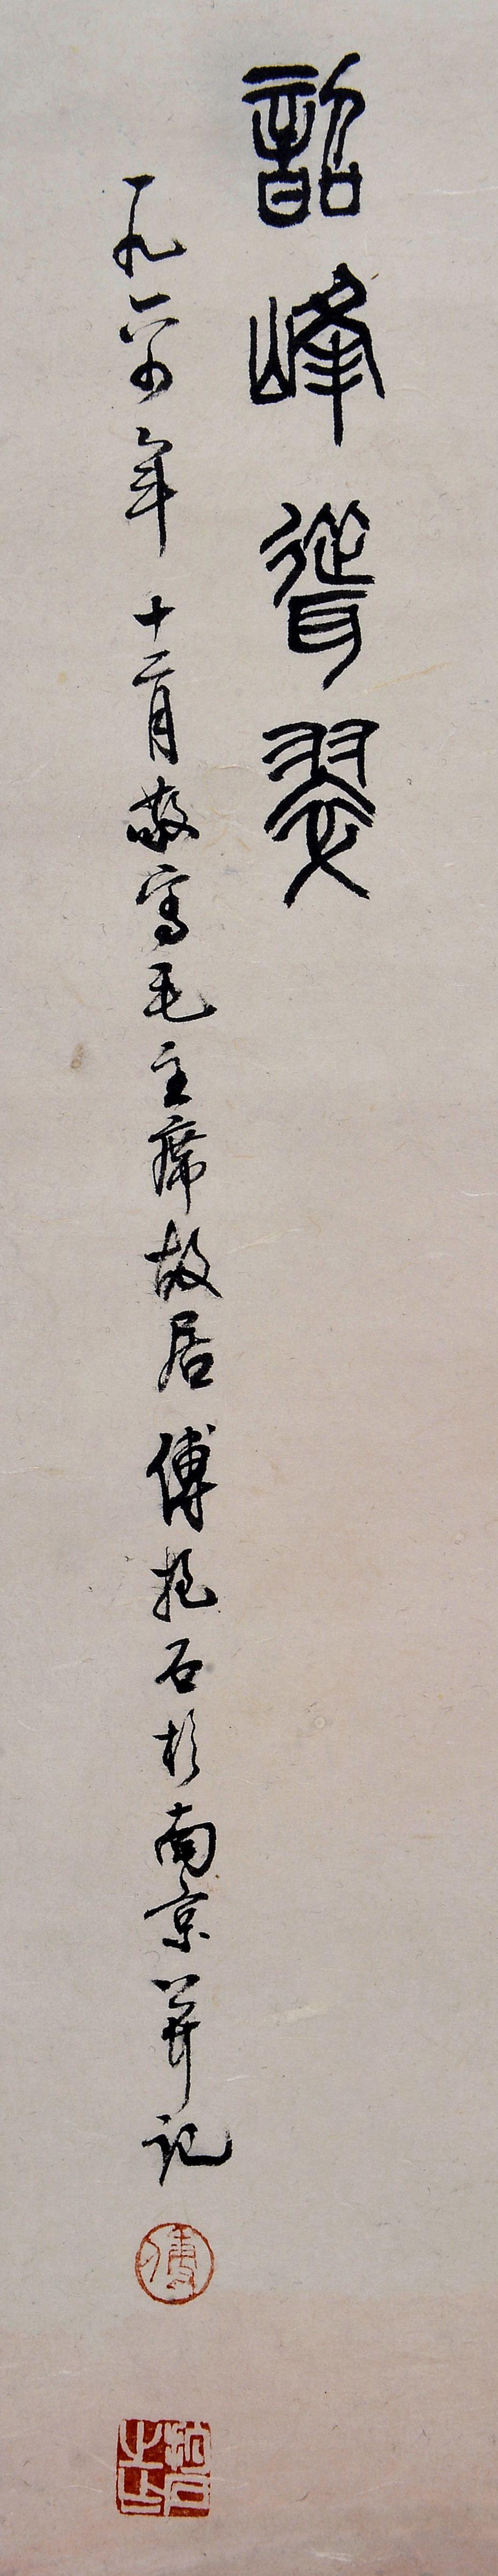 韶峰聳翠
一九六四年十二月敬寫毛主席故居傅抱石於南京并記
傅
抱石之印